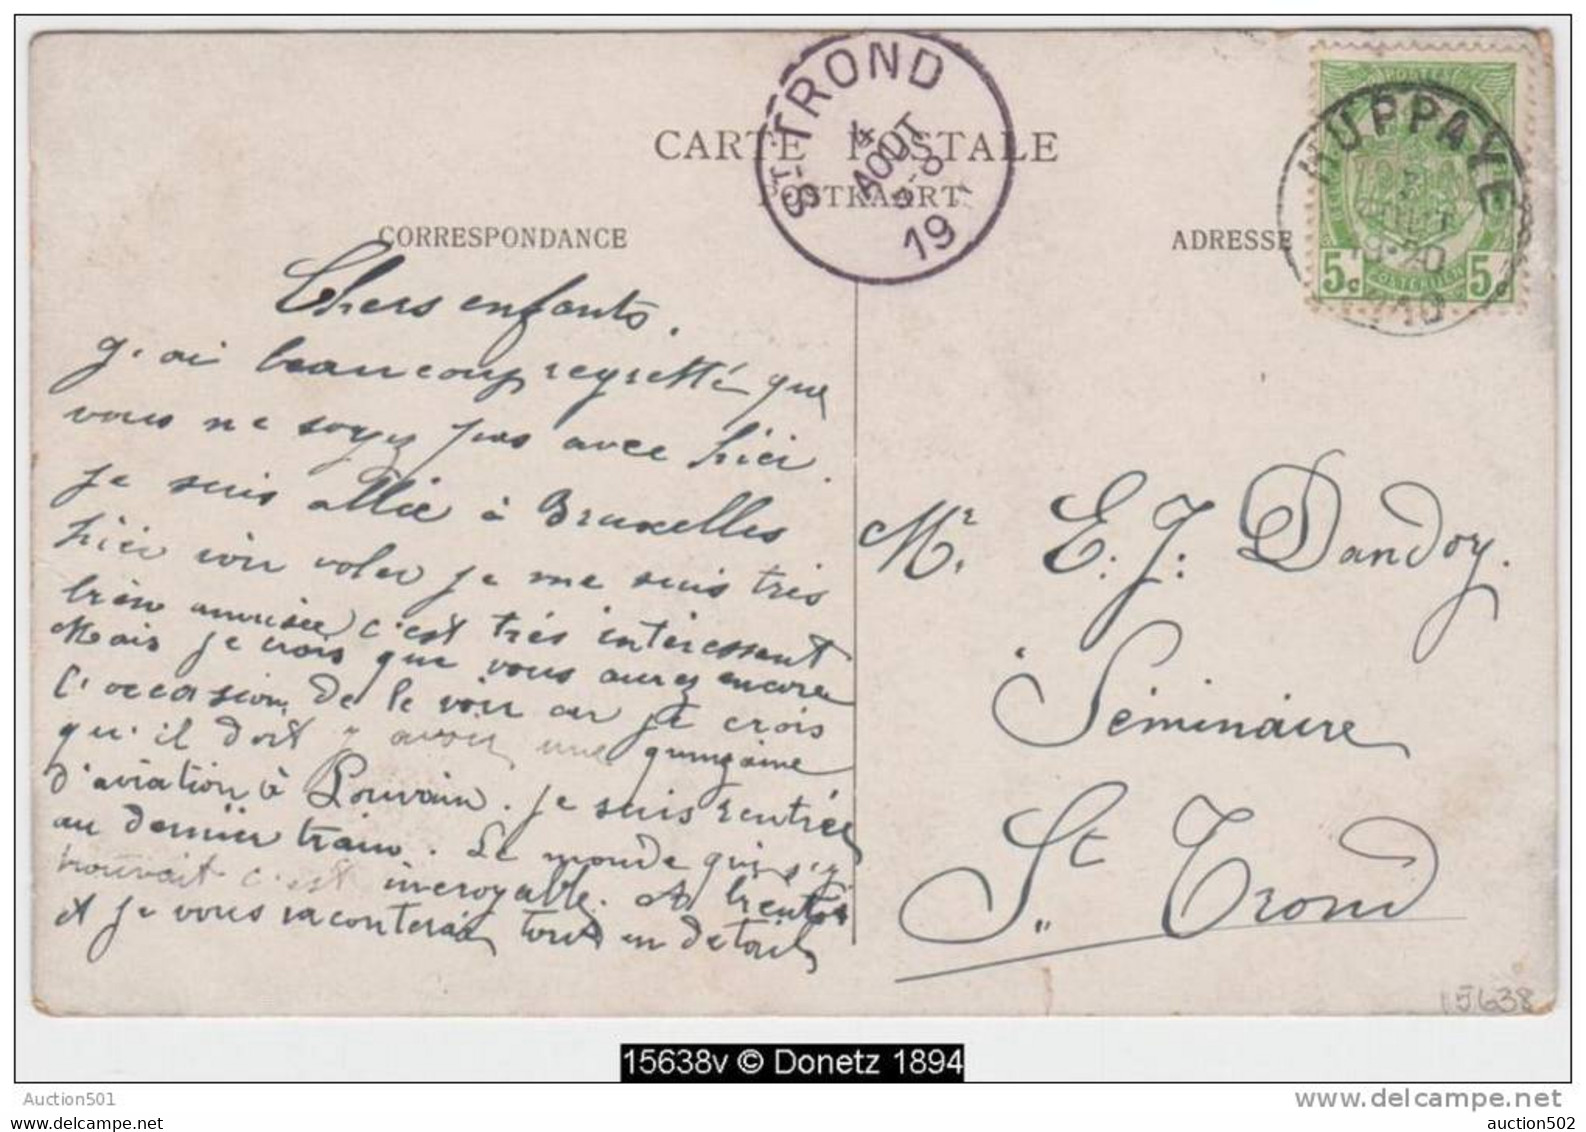 St-TROND
4
AOUT
19
CARTE POSTALE
POSTKAART
CORRESPONDANCE
ADRESSE
HUPPAYE
5c 5c
Chers enfants.
J'ai beaucoup regretté que
vous ne soyez pas avec hier.
je suis allée à Bruxelles
hier voir voler je me suis très
bien amusée, c'est très intéressant
Mais je crois que vous aurez encore
l'occasion de le voir car je crois
qu'il doit y avoir une quinzaine
d'aviation à Louvain. je suis rentrée
au dernier train. Le monde qui s'y
trouvait c'est incroyable. A bientôt
et je vous raconterai tout en détails
Mr. E. J. Dandoy.
Séminaire
St Trond
15638
15638v © Donetz 1894
Auction501
www.delcampe.net
auction501
auction502